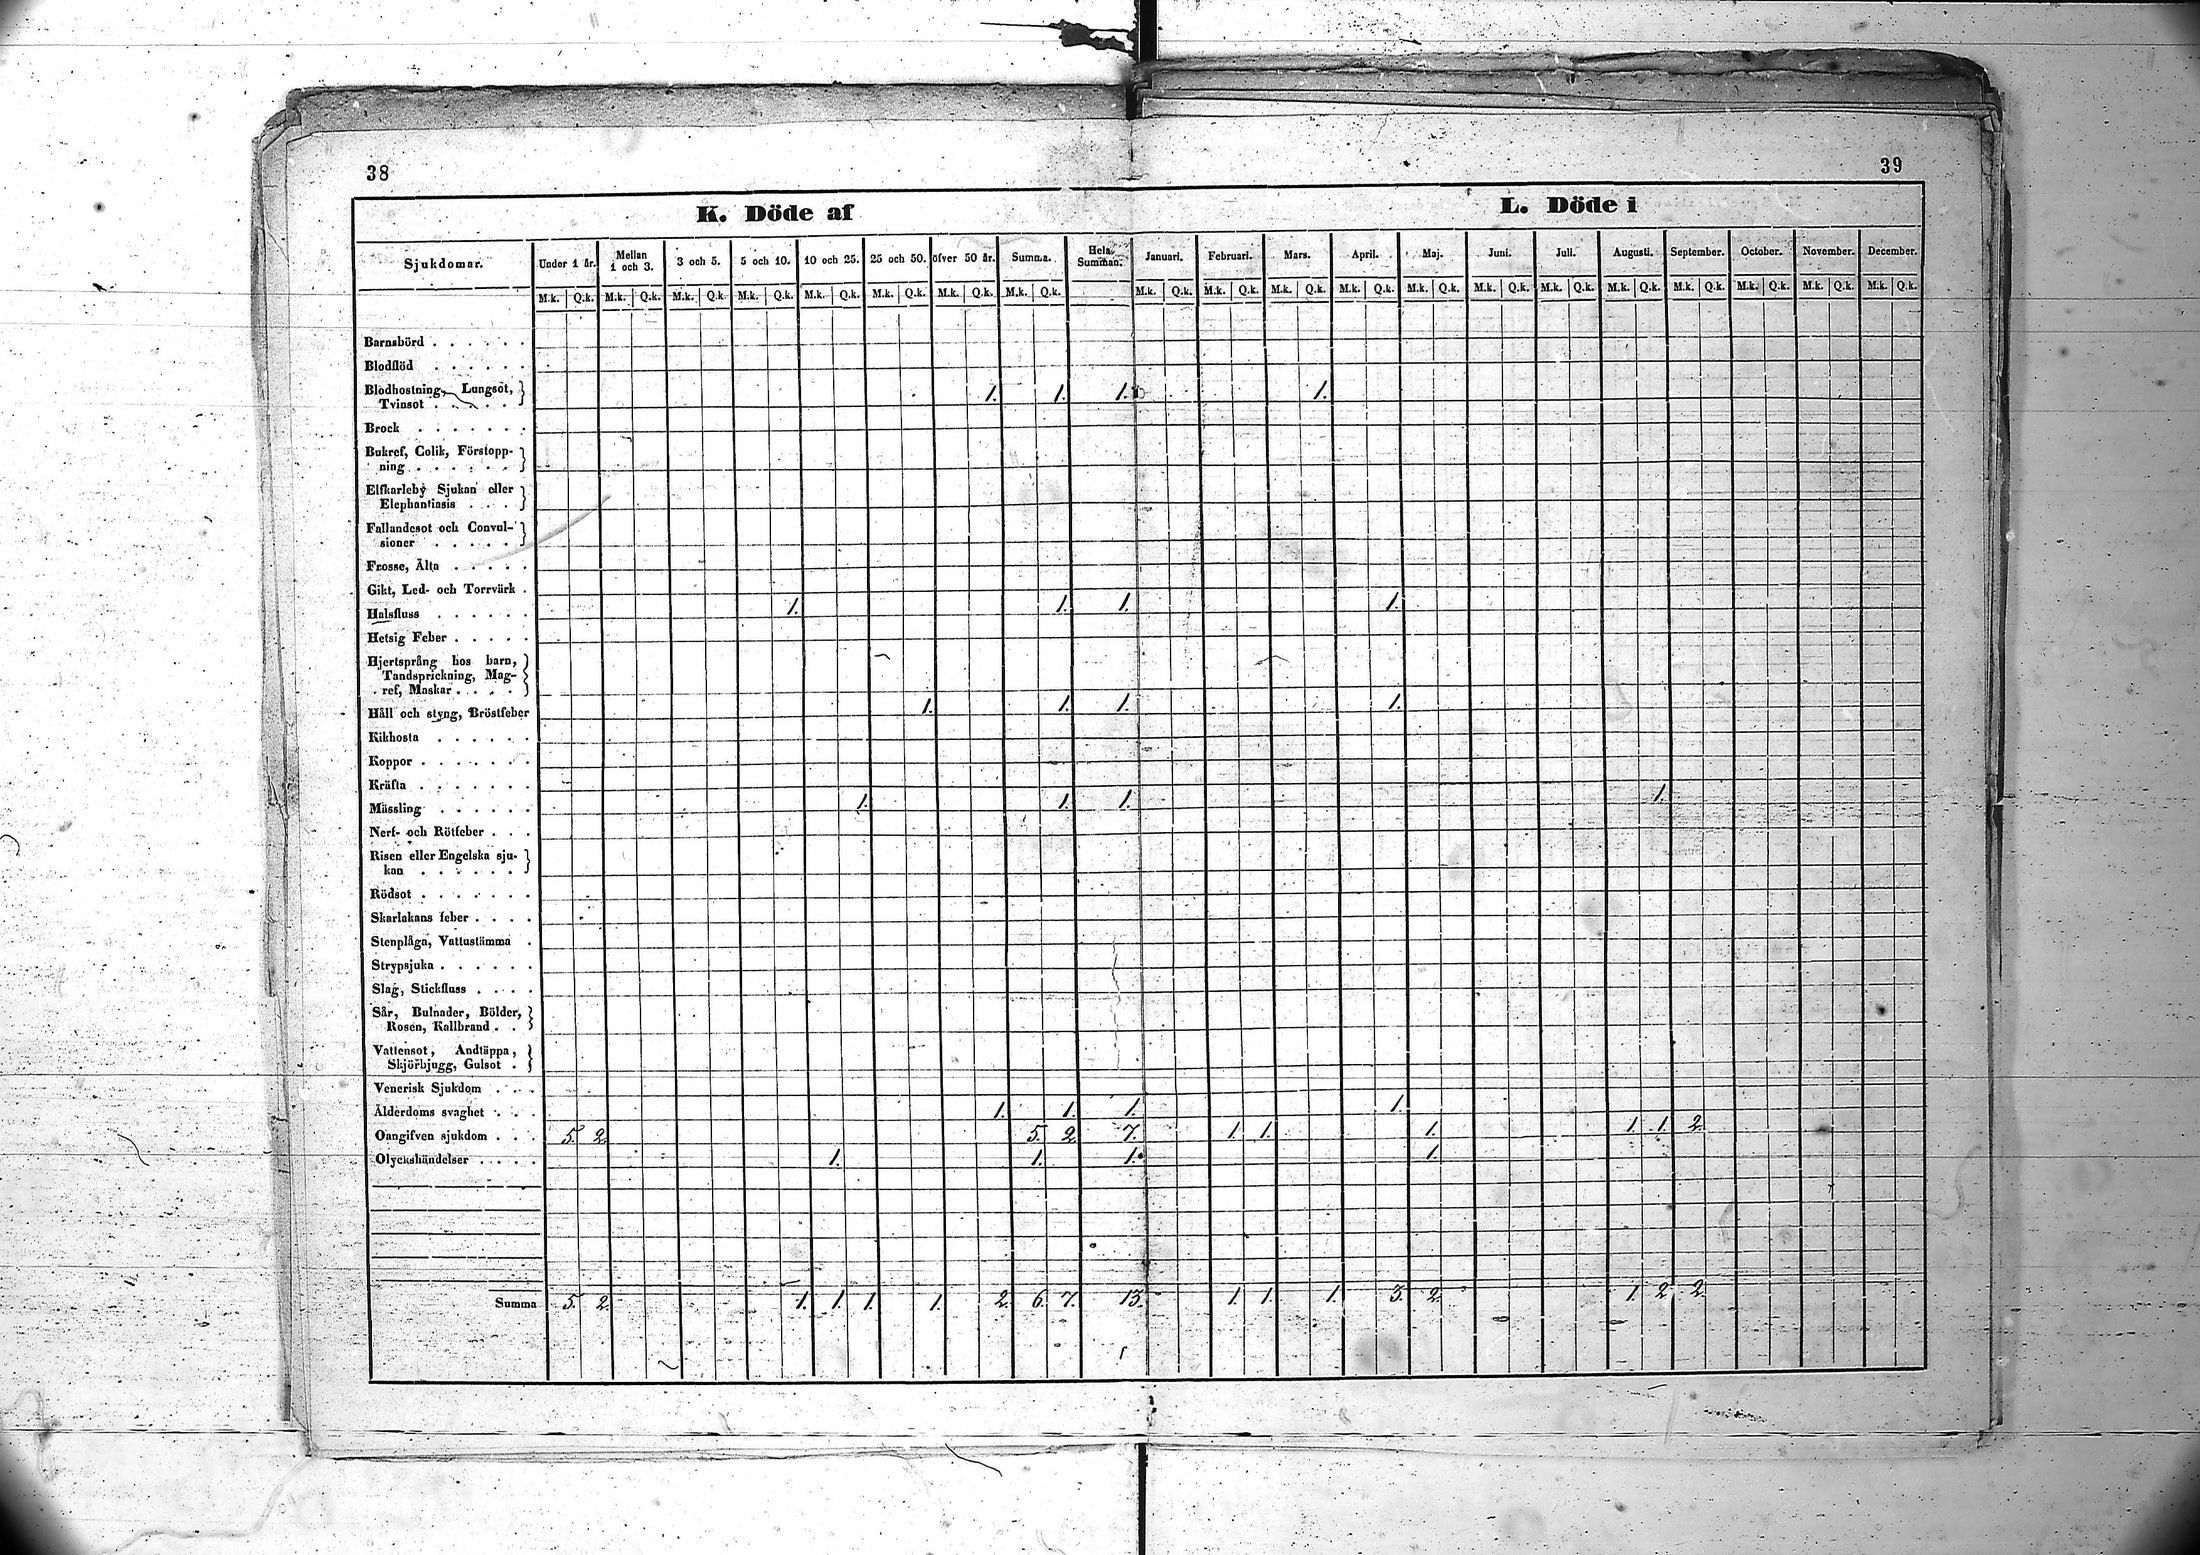 38
39
K. Döde af
L. Döde i
Sjukdomar. Under 1 år. Mellan 1 och 3. 3 och 5. 5 och 10. 10 och 25. 25 och 50. öfver 50 år. Summa. Hela Summan. Januari. Februari. Mars. April. Maj. Juni. Juli. Augusti. September. October. November. December.
M.k. Q.k. M.k. Q.k. M.k. Q.k. M.k. Q.k. M.k. Q.k. M.k. Q.k. M.k. Q.k. M.k. Q.k. M.k. Q.k. M.k. Q.k. M.k. Q.k. M.k. Q.k. M.k. Q.k. M.k. Q.k. M.k. Q.k. M.k. Q.k. M.k. Q.k. M.k. Q.k. M.k. Q.k. M.k. Q.k.
Barnsbörd . . . . . .
Blodflöd . . . . . .
Blodhostning, Lungsot,
Tvinsot . . . . . 1. 1. 1. 1.
Brock . . . . . . .
Bukref, Colik, Förstopp-
ning . . . . . .
Elfkarleby Sjukan eller
Elephantiasis . . .
Fallandesot och Convul-
sioner . . . . .
Frosse, Älta . . . . .
Gikt, Led- och Torrvärk .
Halsfluss . . . . . . 1. 1. 1. 1.
Hetsig Feber . . . . .
Hjertsprång hos barn,
Tandsprickning, Mag-
ref, Maskar . . . .
Håll och styng, Bröstfeber 1. 1. 1. 1.
Kikhosta . . . . . .
Koppor . . . . . . .
Kräfta . . . . . . .
Mässling . . . . . . 1. 1. 1. 1.
Nerf- och Rötfeber . . .
Risen eller Engelska sju-
kan . . . . . .
Rödsot . . . . . . .
Skarlakans feber . . . .
Stenplåga, Vattustämma .
Strypsjuka . . . . . .
Slag, Stickfluss . . . .
Sår, Bulnader, Bölder,
Rosen, Kallbrand . .
Vattensot, Andtäppa,
Skjörbjugg, Gulsot .
Venerisk Sjukdom . . .
Ålderdoms svaghet . . . 1. 1. 1. 1.
Oangifven sjukdom . . . 5. 2. 5. 2. 7. 1. 1. 1. 1. 1. 2.
Olyckshändelser . . . . 1. 1. 1. 1.
Summa 5. 2. 1. 1. 1. 1. 2. 6. 7. 13. 1. 1. 1. 3. 2. 1. 2. 2.